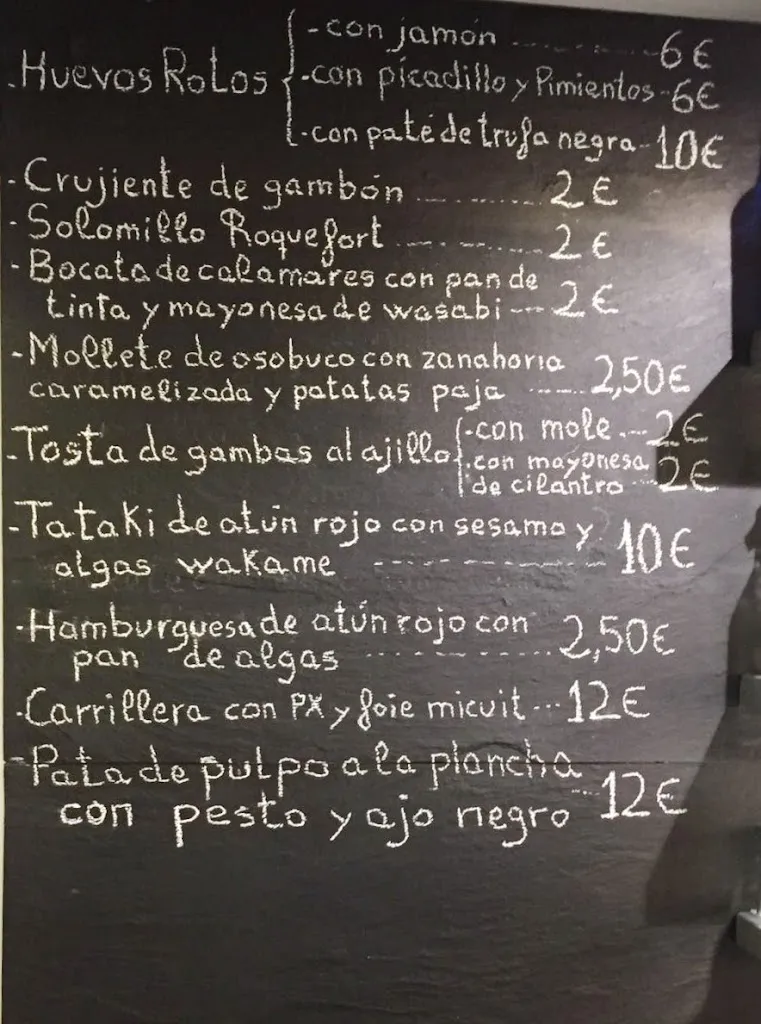 - con jamón ........... 6€
- Huevos Rotos { - con picadillo y Pimientos - 6€
- con paté de trufa negra - 10€
- Crujiente de gambón ........... 2€
- Solomillo Roquefort ........... 2€
- Bocata de calamares con pan de
tinta y mayonesa de wasabi --- 2€
- Mollete de osobuco con zanahoria
caramelizada y patatas paja ...... 2,50€
- Tosta de gambas al ajillo { - con mole .-- 2€
- con mayonesa
de cilantro ---- 2€
- Tataki de atún rojo con sesamo y
algas wakame -------------- 10€
- Hamburguesa de atún rojo con
pan de algas ------------- 2,50€
- Carrillera con PX y foie micuit --- 12€
- Pata de pulpo a la plancha
con pesto y ajo negro --- 12€